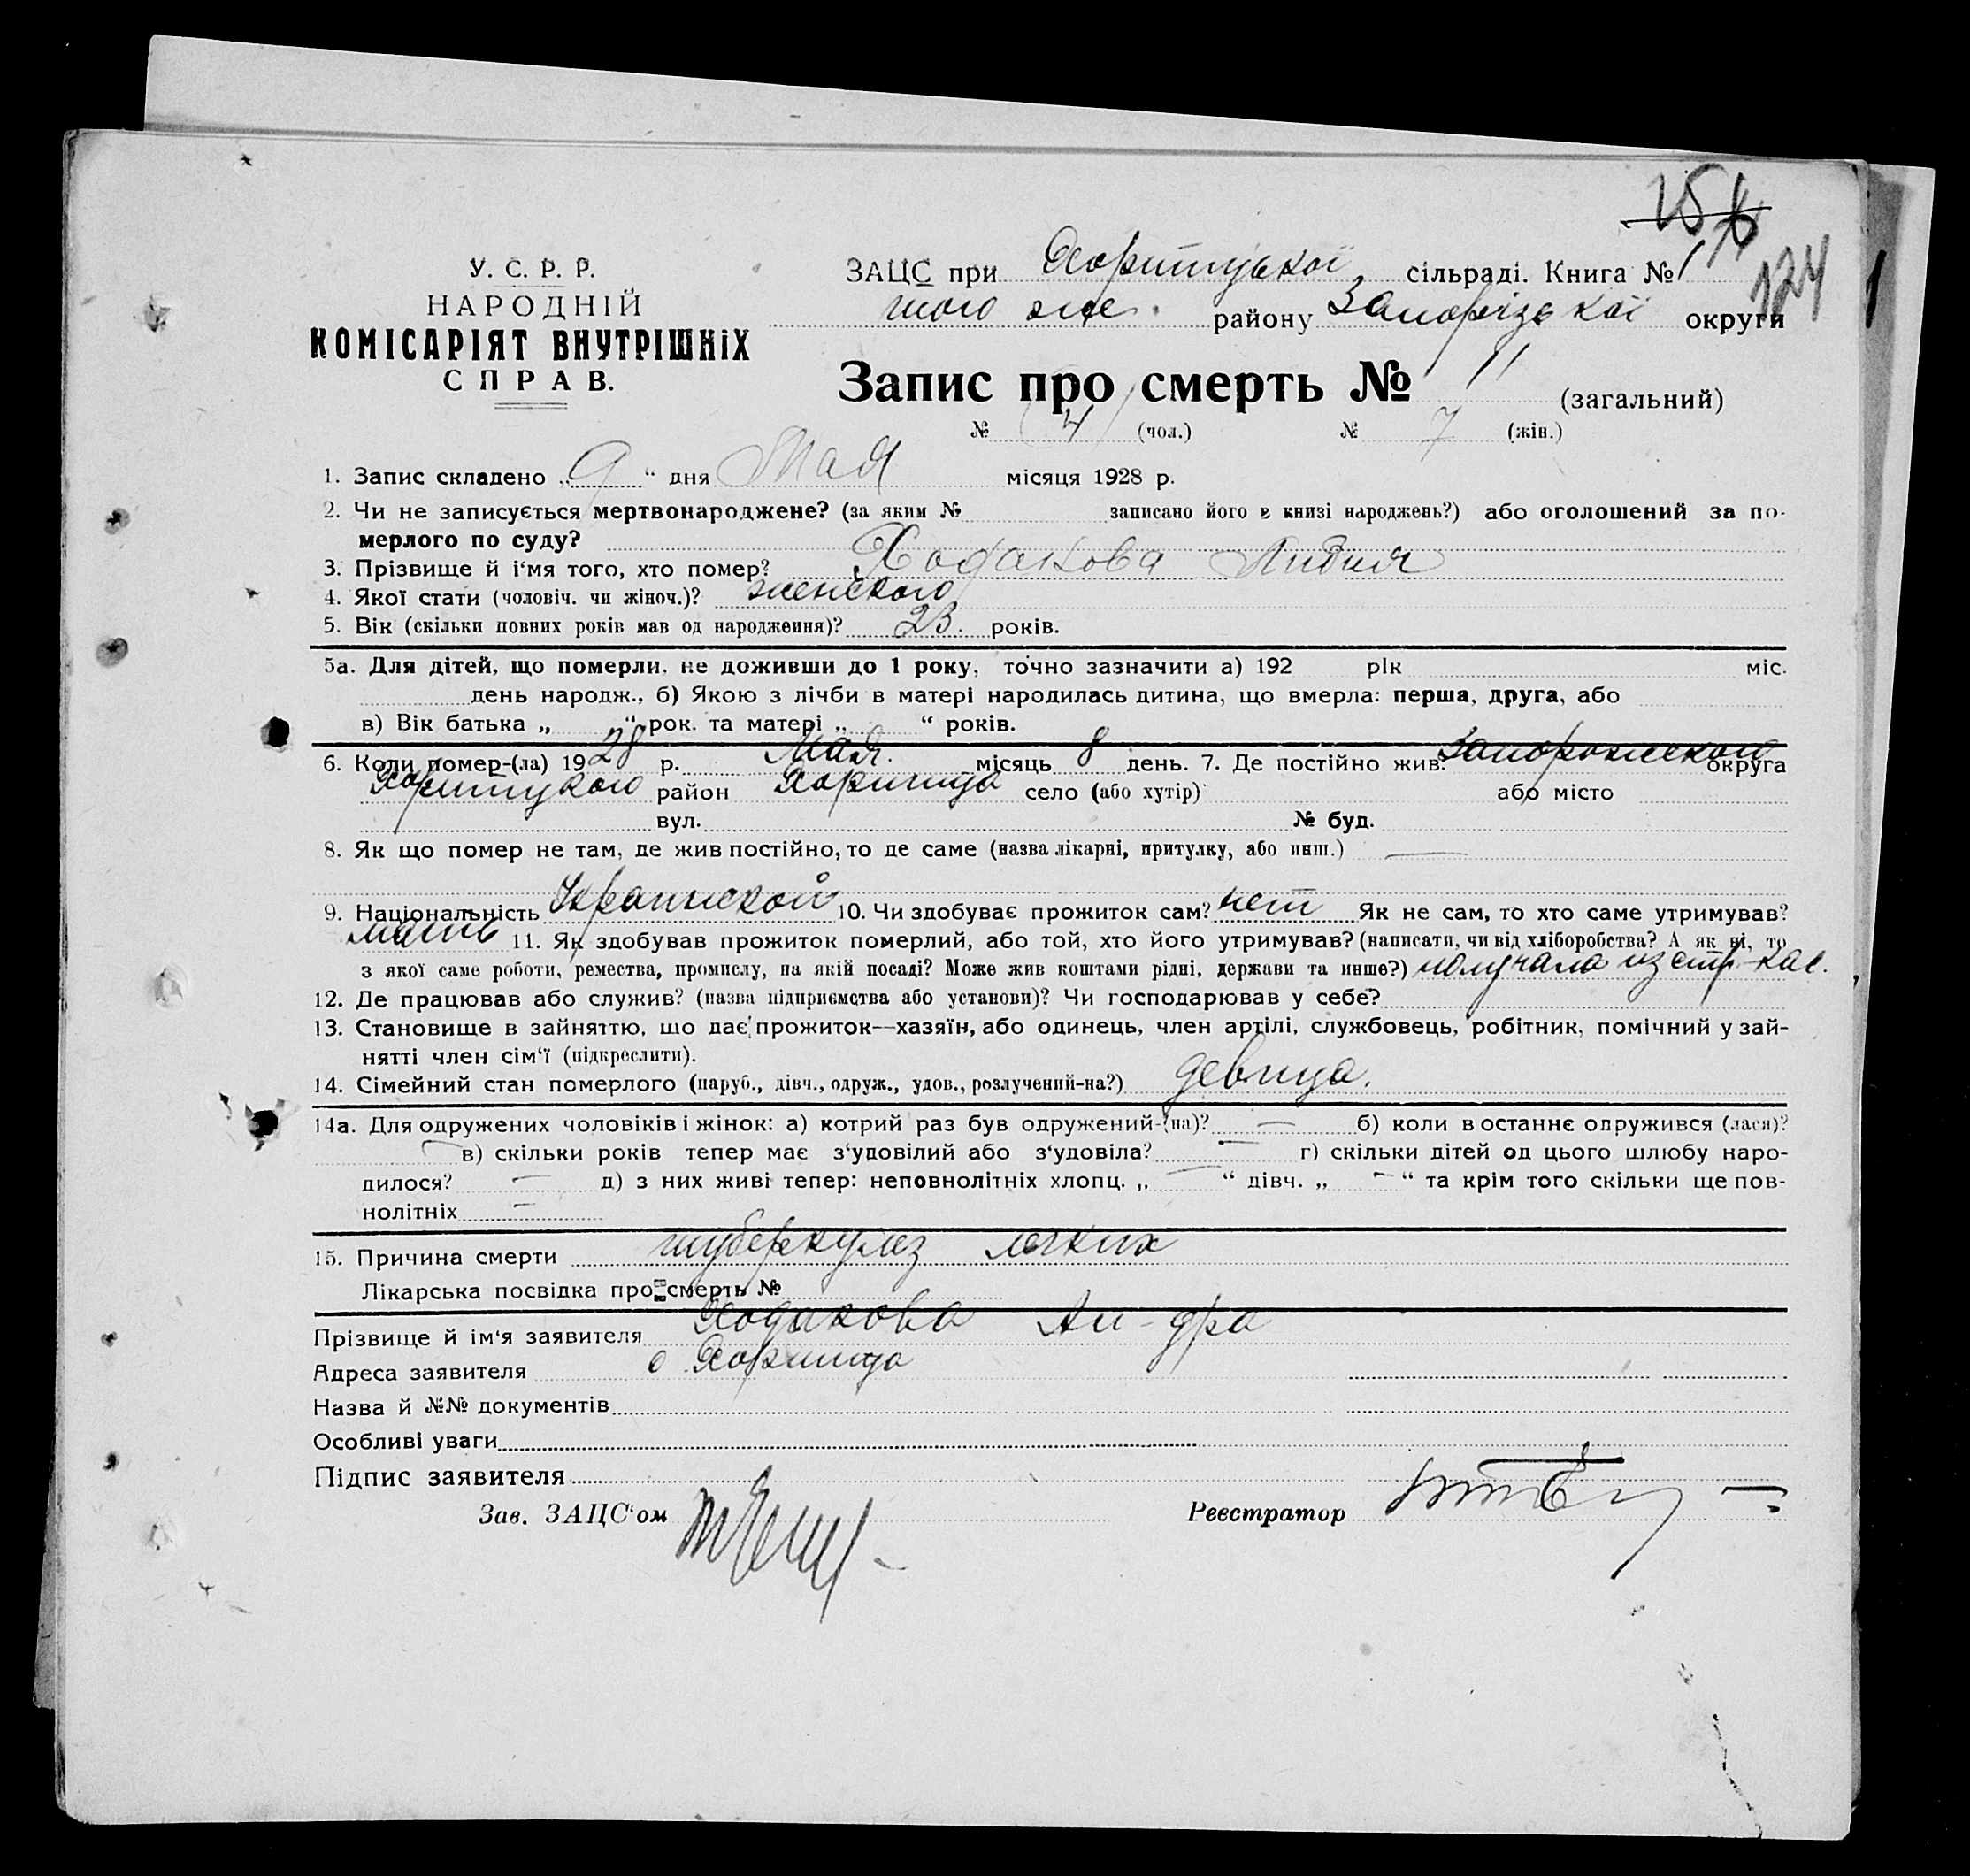 156
124
У. С. Р. Р.
НАРОДНІЙ
КОМІСАРІЯТ ВНУТРІШНІХ
СПРАВ.
ЗАЦС при Хортицької сільраді. Книга № 1
того же. району Запорізької округи
Запис про смерть № 11 (загальний)
№ 4 (чол.) № 7 (жін.)
1. Запис складено „ 9 “ дня Мая місяця 1928 р.
2. Чи не записується мертвонароджене? (за яким № записано його в книзі народжень?) або оголошений за по-
мерлого по суду?
3. Прізвище й і‘мя того, хто помер? Ходакова Лидия
4. Якої стати (чоловіч. чи жіноч.)? женского
5. Вік (скільки повних років мав од народження)? 23. років.
5а. Для дітей, що померли, не доживши до 1 року, точно зазначити а) 192 рік міс.
день народж., б) Якою з лічби в матері народилась дитина, що вмерла: перша, друга, або
в) Вік батька „ “ рок. та матері „ “ років.
6. Коли помер-(ла) 1928 р. Мая. місяць 8 день. 7. Де постійно жив: Запорожского округа
Хортицкого район Хортица село (або хутір) або місто
вул. № буд.
8. Як що помер не там, де жив постійно, то де саме (назва лікарні, притулку, або инш.) —
9. Національність Украинской 10. Чи здобуває прожиток сам? нет Як не сам, то хто саме утримував?
мать 11. Як здобував прожиток померлий, або той, хто його утримував? (написати, чи від хліборобства? А як ні, то
з якої саме роботи, ремества, промислу, на якій посаді? Може жив коштами рідні, держави та инше?) получала из стр-кас.
12. Де працював або служив? (назва підприємства або установи)? Чи господарював у себе?
13. Становище в зайняттю, що дає прожиток—хазяїн, або одинець, член артілі, службовець, робітник, помічний у зай-
нятті член сім‘ї (підкреслити).
14. Сімейний стан померлого (паруб., дівч., одруж., удов., розлучений-на?) девица.
14а. Для одружених чоловіків і жінок: а) котрий раз був одружений-(на)? — б) коли в останнє одружився (лася)?
— в) скільки років тепер має з‘удовілий або з‘удовіла? — г) скільки дітей од цього шлюбу наро-
дилося? — д) з них живі тепер: неповнолітніх хлопц. „ — “ дівч. „ — “ та крім того скільки ще пов-
нолітніх —
15. Причина смерти туберкулез легких
Лікарська посвідка про смерть №
Прізвище й ім‘я заявителя Ходакова Ал-дра
Адреса заявителя с Хортица
Назва й №№ документів
Особливі уваги
Підпис заявителя
Зав. ЗАЦС‘ом
Реєстратор